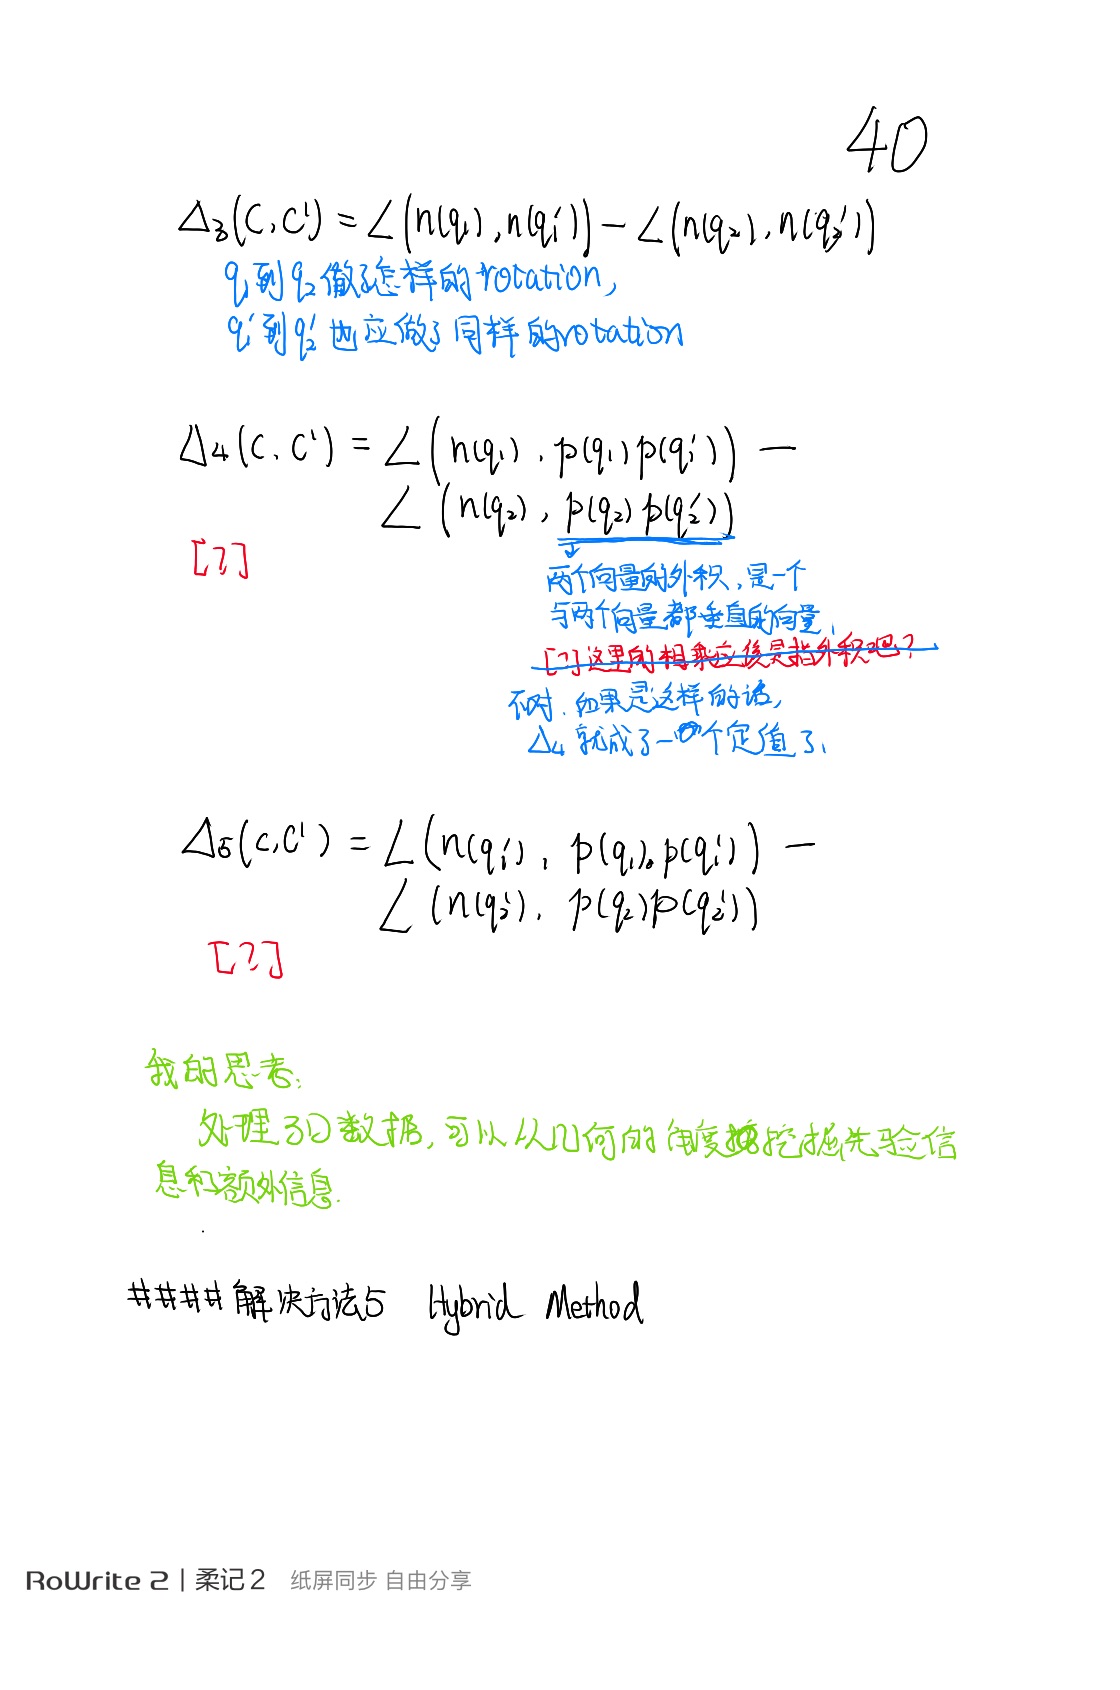 40
Δ₃(C, C') = ∠(n(q₁), n(q₁')) − ∠(n(q₂), n(q₂'))
q₁到q₂做了怎样的rotation,
q₁'到q₂'也应做了同样的rotation
Δ₄(C, C') = ∠(n(q₁), p(q₁)p(q₁')) −
∠(n(q₂), p(q₂)p(q₂'))
[?]
两个向量的外积,是一个
与两个向量都垂直的向量.
[?]这里的相乘应该是指外积吧?
不对.如果是这样的话,
Δ₄就成了一个定值了.
Δ₅(C, C') = ∠(n(q₁'), p(q₁)p(q₁')) −
∠(n(q₂'), p(q₂)p(q₂'))
[?]
我的思考:
处理3D数据,可以从几何的角度挖掘先验信
息和额外信息.
####解决方法5 Hybrid Method
RoWrite 2 | 柔记2 纸屏同步 自由分享